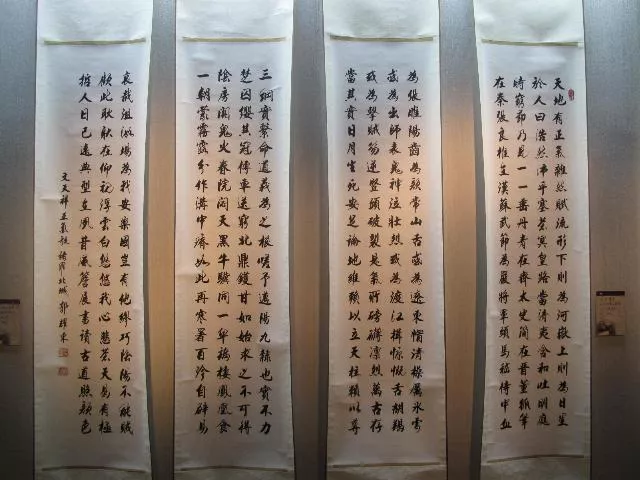 天地有正氣雜然賦流形下則為河嶽上則為日星
於人曰浩然沛乎塞蒼冥皇路當清夷含和吐明庭
時窮節乃見一一垂丹青在齊太史簡在晉董狐筆
在秦張良椎在漢蘇武節為嚴將軍頭為嵇侍中血
為張睢陽齒為顏常山舌或為遼東帽清操厲冰雪
或為出師表鬼神泣壯烈或為渡江楫慷慨吞胡羯
或為擊賊笏逆豎頭破裂是氣所磅礴凜烈萬古存
當其貫日月生死安足論地維賴以立天柱賴以尊
三綱實繫命道義為之根嗟予遘陽九隸也實不力
楚囚纓其冠傳車送窮北鼎鑊甘如飴求之不可得
陰房闃鬼火春院閟天黑牛驥同一皁鷄棲鳳凰食
一朝蒙霧露分作溝中瘠如此再寒暑百沴自辟易
哀哉沮洳場為我安樂國豈有他繆巧陰陽不能賊
顧此耿耿在仰視浮雲白悠悠我心悲蒼天曷有極
哲人日已遠典型在夙昔風簷展書讀古道照顏色
文天祥正氣歌